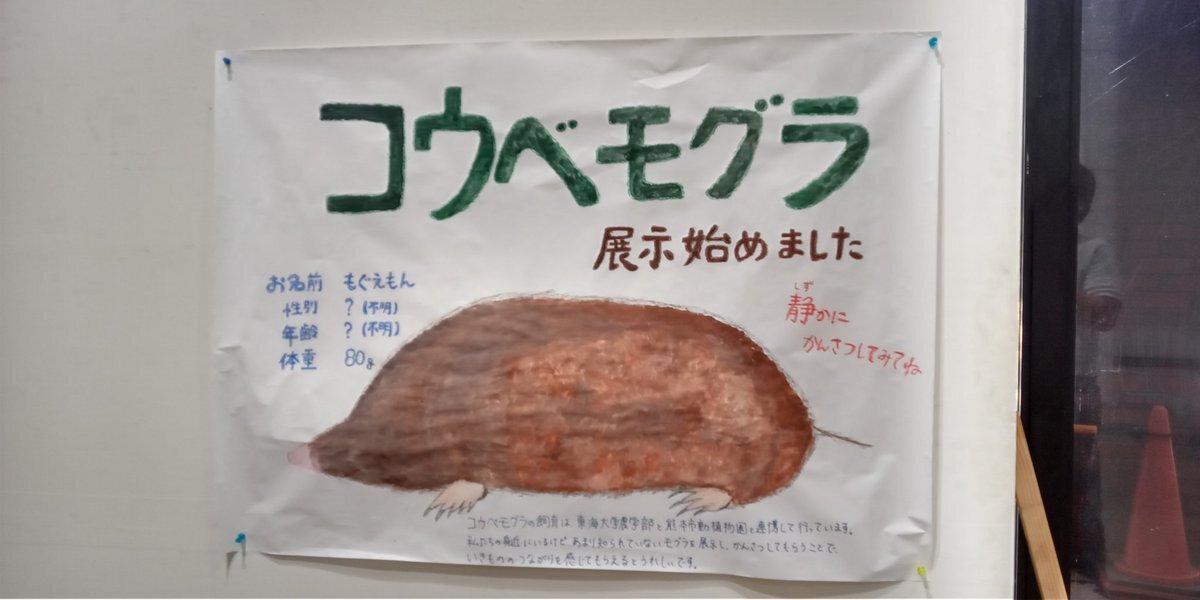 コウベモグラ
展示始めました
お名前 もぐえもん
性別 ? (不明)
年齢 ? (不明)
体重 80g
しず
静かに
かんさつしてみてね
コウベモグラの飼育は東海大学農学部と熊本市動植物園と連携して行っています。
私たちの身近にいるけど、あまり知られていないモグラを展示し、かんさつしてもらうことで、
いきもののつながりを感じてもらえるとうれしいです。